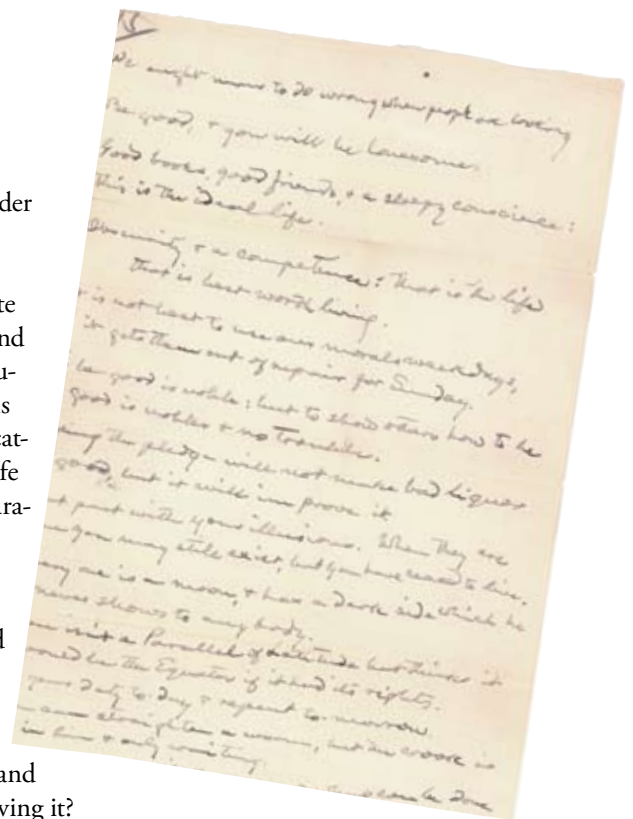 der
te
nd
u-
s
cat-
fe
ara-
d
and
ving it?
15
We ought never to do wrong when people are looking
Be good, + you will be lonesome.
Good books, good friends, + a sleepy conscience:
this is the ideal life.
Obscurity + a competence: that is the life
that is best worth living.
t is not best to use our morals week days,
it gets them out of repair for Sunday.
be good is noble; but to show others how to be
good is nobler + no trouble.
ing the pledge will not make bad liquor
good, but it will improve it
t part with your illusions. When they are
ne you may still exist, but you have ceased to live.
ery one is a moon, + has a dark side which he
never shows to anybody.
isn't a Parallel of Latitude but thinks it
would be the Equator if it had its rights.
your duty to-day + repent to-morrow.
can straighten a worm, but the crook is
in him + only waiting.
can be done